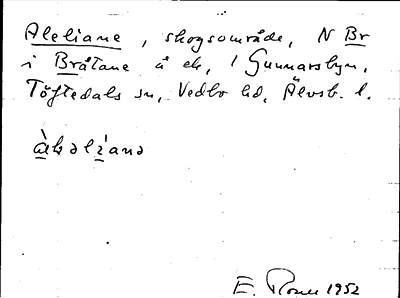 Aleliane, skogsområde, N Br
i Bråtane å ek, 1 Gunnarsbyn,
Töftedals sn, Vedbo hd, Älvsb. l.
àləlìanə
E. 1952